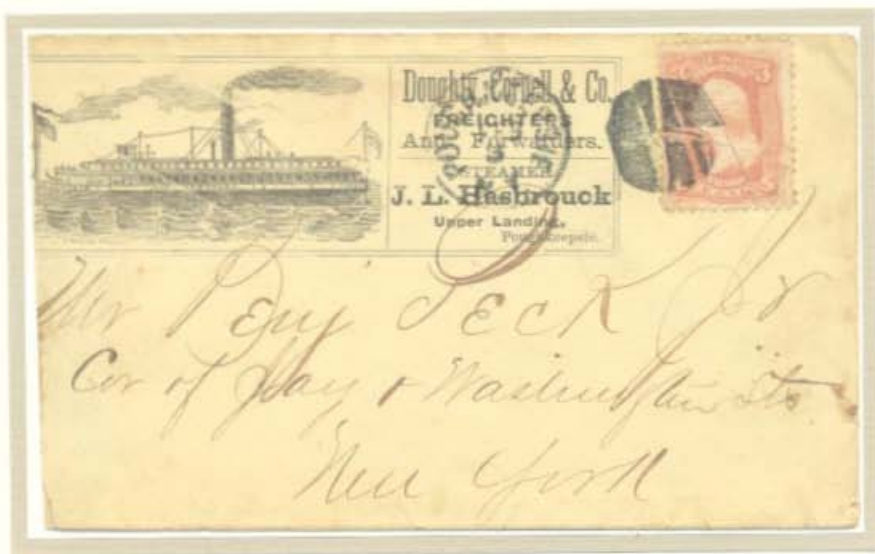 Doughty, Cornell & Co.
FREIGHTERS
And Forwarders.
STEAMER
J. L. Hasbrouck
Upper Landing,
Poughkeepsie.
3
Mr Benj Peck Jr
Cor of Jay & Washington Sts
New York